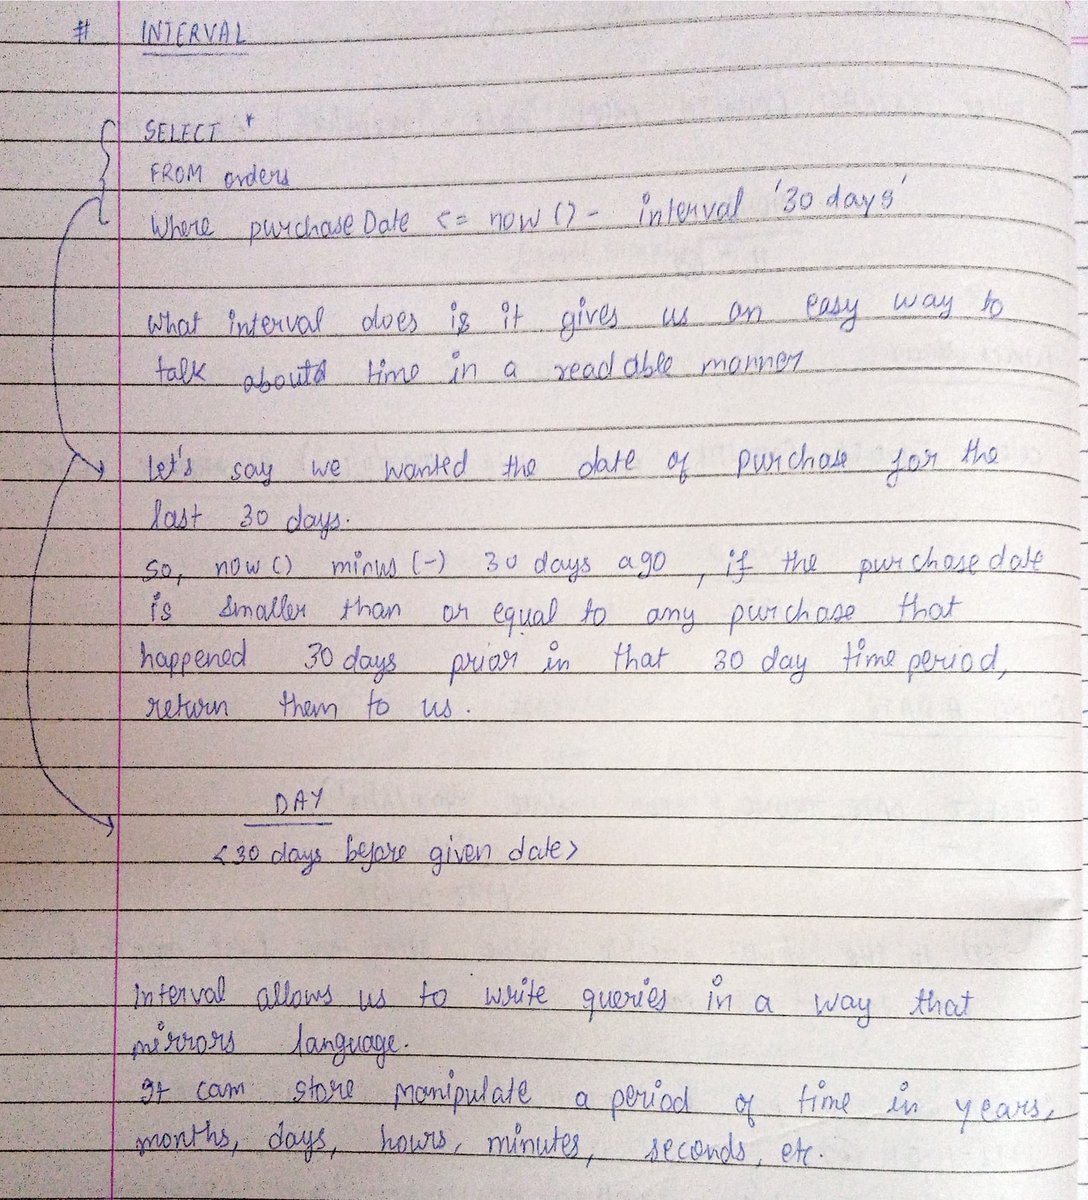 # INTERVAL
SELECT *
FROM orders
Where purchaseDate <= now () - interval '30 days'
What interval does is it gives us an easy way to
talk about time in a readable manner
Let's say we wanted the date of purchase for the
last 30 days.
So, now () minus (-) 30 days ago, if the purchase date
is smaller than or equal to any purchase that
happened 30 days prior in that 30 day time period,
return them to us.
DAY
<30 days before given date>
Interval allows us to write queries in a way that
mirrors language.
It can store manipulate a period of time in years,
months, days, hours, minutes, seconds, etc.